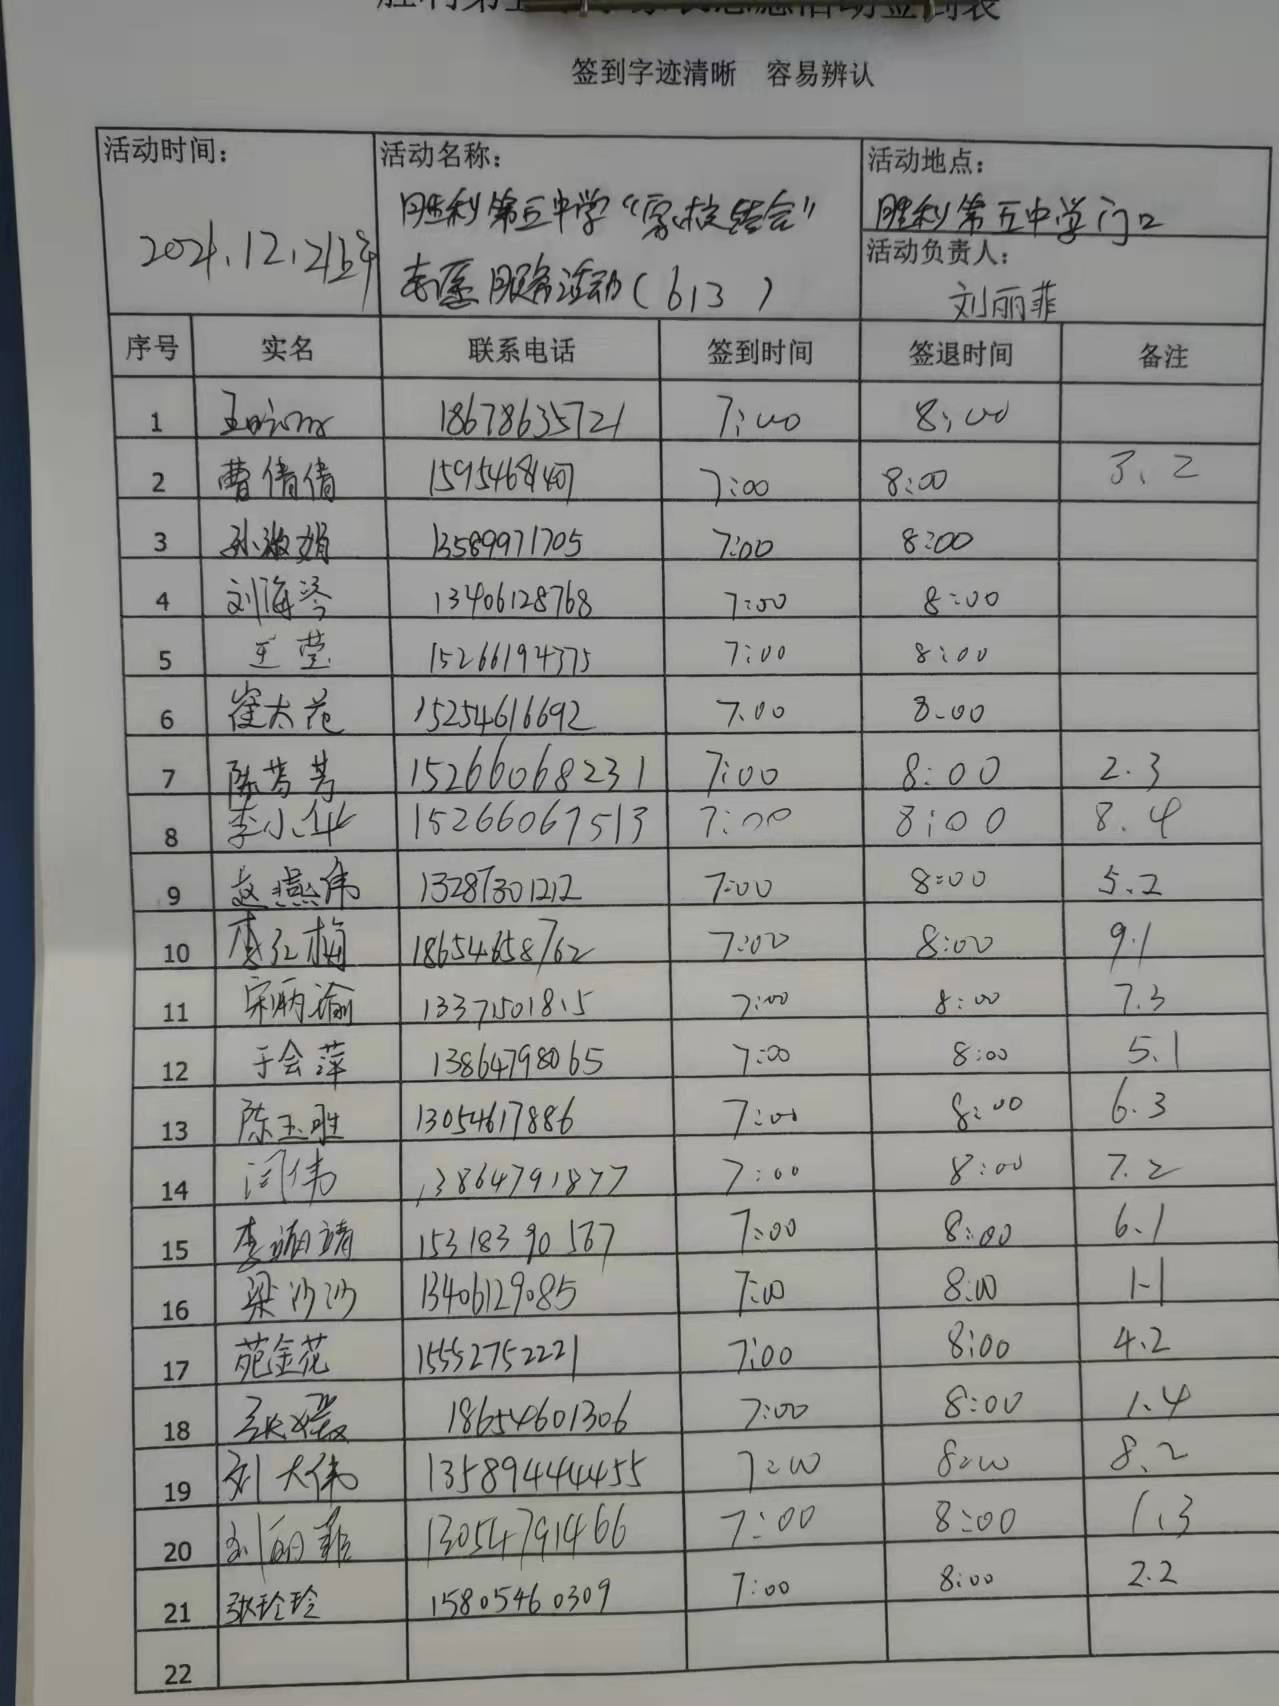 签到字迹清晰 容易辨认
活动时间: 活动名称: 活动地点:
2021.12.21 胜利第五中学“家校结合” 胜利第五中学门口
志愿服务活动(613) 活动负责人:
刘丽菲
序号 实名 联系电话 签到时间 签退时间 备注
1 18678635721 7:00 8:00
2 曹倩倩 7:00 8:00 3.2
3 孙淑娟 13589971705 7:00 8:00
4 刘海琴 13406128768 7:00 8:00
5 王莹 15266194375 7:00 8:00
6 崔太花 15254616692 7:00 8:00
7 陈芳芳 15266068231 7:00 8:00 2.3
8 李小华 15266067513 7:00 8:00 8.4
9 赵燕伟 13287301212 7:00 8:00 5.2
10 李红梅 18654658762 7:00 8:00 9.1
11 宋炳瑜 13371501815 7:00 8:00 7.3
12 于会萍 13864798065 7:00 8:00 5.1
13 陈玉胜 13054617886 7:00 8:00 6.3
14 闫伟 13864791877 7:00 8:00 7.2
15 15318390567 7:00 8:00 6.1
16 梁沙沙 13406129085 7:00 8:00 1-1
17 苑金花 15552752221 7:00 8:00 4.2
18 张媛 18654601306 7:00 8:00 1.4
19 刘大伟 13589444455 7:00 8:00 8.2
20 刘丽菲 13054791466 7:00 8:00 1.3
21 张玲玲 15805460309 7:00 8:00 2.2
22